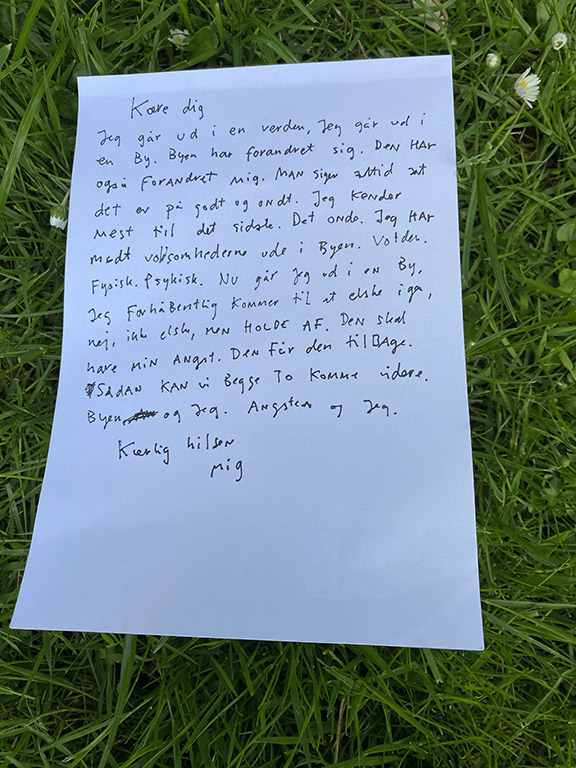 Kære dig
Jeg går ud i en verden, Jeg går ud i
en By. Byen har forandret sig. DEN HAR
også FORANDRET Mig. MAN siger altid at
det er på godt og ondt. Jeg Kender
Mest til det sidste. Det onde. Jeg HAR
mødt voldsomhederne ude i Byen. Volden.
Fysisk. Psykisk. Nu går Jeg ud i en By,
Jeg FORHÅBENTLIG Kommer til at elske igen,
nej, ikke elske, MEN HOLDE AF. Den skal
have MIN Angst. DEN Får den tilBAGE.
SÅDAN KAN vi Begge To Komme videre.
Byen og Jeg. Angsten og Jeg.
Kærlig hilsen
Mig